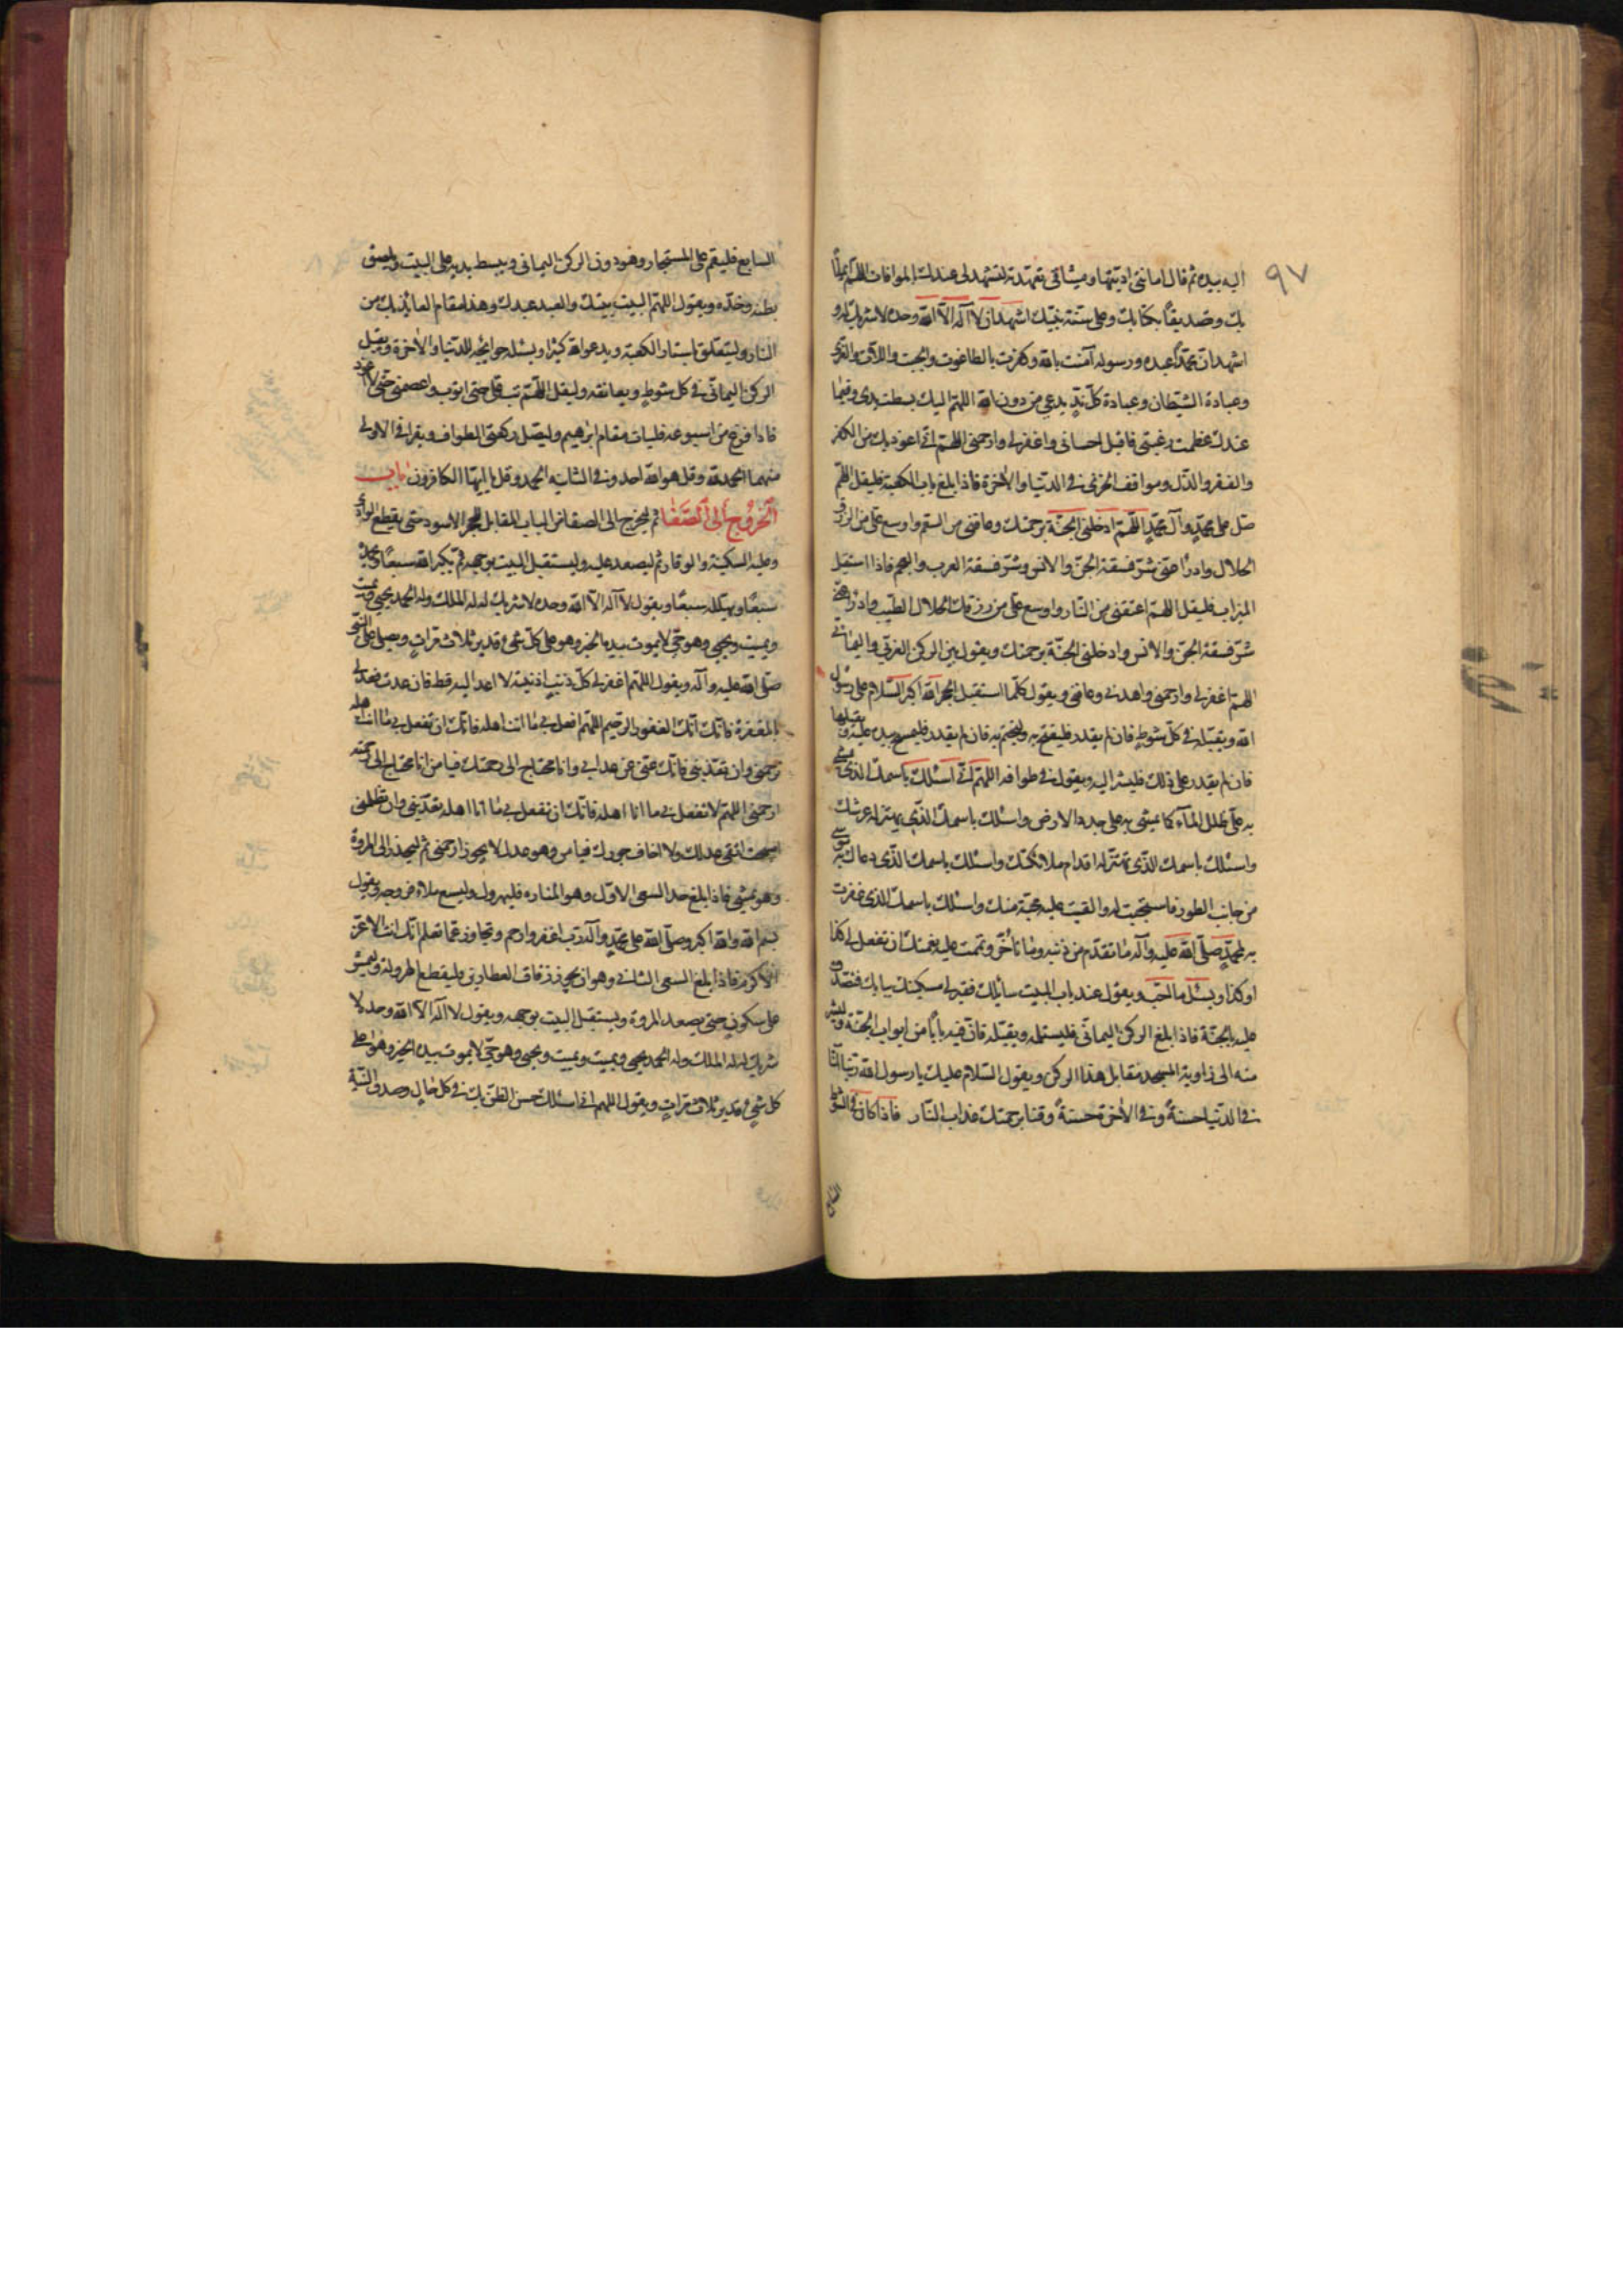 ٩٧
اليه بيده ثم قال امانتی ادیتها ومیثاقی تعهدته لتشهد لی عندك بالموافات اللهم ایمانًا
بك وتصدیقًا بكتابك وعلى سنة نبیك اشهد ان لا آله الا الله وحده لا شریك له و
اشهد ان محمدًا عبده ورسوله آمنت بالله وكفرت بالطاغوت والجبت واللات والعزى
وعبادة الشیطان وعبادة كل ندٍ یدعى من دون الله اللهم الیك بسطت یدی وفیما
عندك عظمت رغبتی فاقبل واغفر لی وارحمنی اللهم انی اعوذ بك من الكفر
والفقر والذل ومواقف الخزی فی الدنیا والاخرة فاذا بلغ باب الكعبة فلیقل اللهم
صل على محمدٍ وآل محمدٍ اللهم ادخلنی الجنة برحمتك وعافنی من السقم واوسع علی من الرزق
الحلال وادرأ عنی شر فسقة الجن والانس وشر فسقة العرب والعجم فاذا استقبل
المیزاب فلیقل اللهم اعتقنی من النار واوسع علی من رزقك الحلال الطیب وادرأ عنی
شر فسقة الجن والانس وادخلنی الجنة برحمتك ویقول بین الركن الغربی والیمانی
اللهم اغفر لی وارحمنی واهدنی وعافنی ویقول كلما استقبل الحجر الله اكبر السلام على رسول
الله ویقبله فی كل شوطٍ فان لم یقدر فلیفتح به ولیختم به فان لم یقدر فلیمسح بیده علیه ویقبلها
فان لم یقدر على ذلك فلیشر الیه ویقول فی طوافه اللهم انی اسئلك باسمك الذی یمشى
به على ظلل المآء كما یمشى به على جدد الارض واسئلك باسمك الذی یهتز له عرشك
واسئلك باسمك الذی تهتز له اقدام ملائكتك واسئلك باسمك الذی دعاك به موسى
من جانب الطور فاستجبت له والقیت علیه محبة منك واسئلك باسمك الذی غفرت
به لمحمدٍ صلى الله علیه وآله ما تقدم من ذنبه وما تأخر وتممت علیه نعمتك ان تفعل لی كذا
او كذا ویسئل ما احب ویقول عند باب البیت سائلك فقیرك مسكینك ببابك فتصدق
علیه بالجنة فاذا بلغ الركن الیمانی فلیستلمه ویقبله فان فیه بابًا من ابواب الجنة ولیشر
منه الى زاویة المسجد مقابل هذا الركن ویقول السلام علیك یا رسول الله ربنا آتنا
فی الدنیا حسنةً وفی الاخرة حسنةً وقنا برحمتك عذاب النار فاذا كان فی الشوط
السابع
السابع فلیقم على المستجار وهو دون الركن الیمانی ویبسط یدیه على البیت ویلصق
بطنه وخده ویقول اللهم البیت بیتك والعبد عبدك وهذا مقام العائذ بك من
النار ولیتعلق باستار الكعبة ویدعو الله كثیرا ویسئله حوائجه للدنیا والاخرة ویقبل
الركن الیمانی فی كل شوطٍ ویعانقه ولیقل اللهم تب علی حتى اتوب واعصمنی حتى لا اعود
فاذا فرغ من اسبوعه فلیات مقام ابراهیم ولیصل ركعتی الطواف ویقرا فی الاولى
منهما الحمد لله وقل هو الله احد وفی الثانیه الحمد وقل یا ایها الكافرون باب
الخروج الى الصفا ثم لیخرج الى الصفا من الباب المقابل للحجر الاسود حتى یقطع الوادی
وعلیه السكینة والوقار ثم لیصعد علیه ولیستقبل البیت بوجهه ثم یكبر الله سبعًا ویحمده
سبعًا ویهلله سبعًا ویقول لا آله الا الله وحده لا شریك له له الملك وله الحمد یحیی ویمیت
ویمیت ویحیی وهو حی لا یموت بیده الخیر وهو على كل شیء قدیر ثلاث مراتٍ ویصلی على النبی
صلى الله علیه وآله ویقول اللهم اغفر لی كل ذنبٍ اذنبته لا اعد الیه قط فان عدت فعد لی
بالمغفرة فانك انك الغفور الرحیم اللهم افعل بی ما انت اهله فانك ان تفعل بی ما انت اهله
ترحمنی وان تعذبنی فانك غنی عن عذابی وانا محتاج الى رحمتك فیا من انا محتاج الى رحمته
ارحمنی اللهم لا تفعل بی ما انا اهله فانك ان تفعل بی ما انا اهله تعذبنی ولن تظلمنی
اصبحت اتقی عدلك ولا اخاف جورك فیا من هو عدل لا یجور ارحمنی ثم لینحدر الى المروة
وهو یمشی فاذا بلغ حد السعی الاول وهو المناره فلیهرول ولیسع ملأ فروجه ویقول
بسم الله والله اكبر وصلى الله على محمدٍ وآله رب اغفر وارحم وتجاوز عما تعلم انك انت الاعز
الاكرم فاذا بلغ السعی الثانی وهو ان یجوز زقاق العطارین فلیقطع الهرولة ولیمش
على سكونٍ حتى یصعد المروة ویستقبل البیت بوجهه ویقول لا آله الا الله وحده لا
شریك له له الملك وله الحمد یحیی ویمیت ویمیت ویحیی وهو حی لا یموت بیده الخیر وهو على
كل شیءٍ قدیر ثلاث مراتٍ ویقول اللهم انی اسئلك حسن الظن بك فی كل حالٍ وصدق النیة